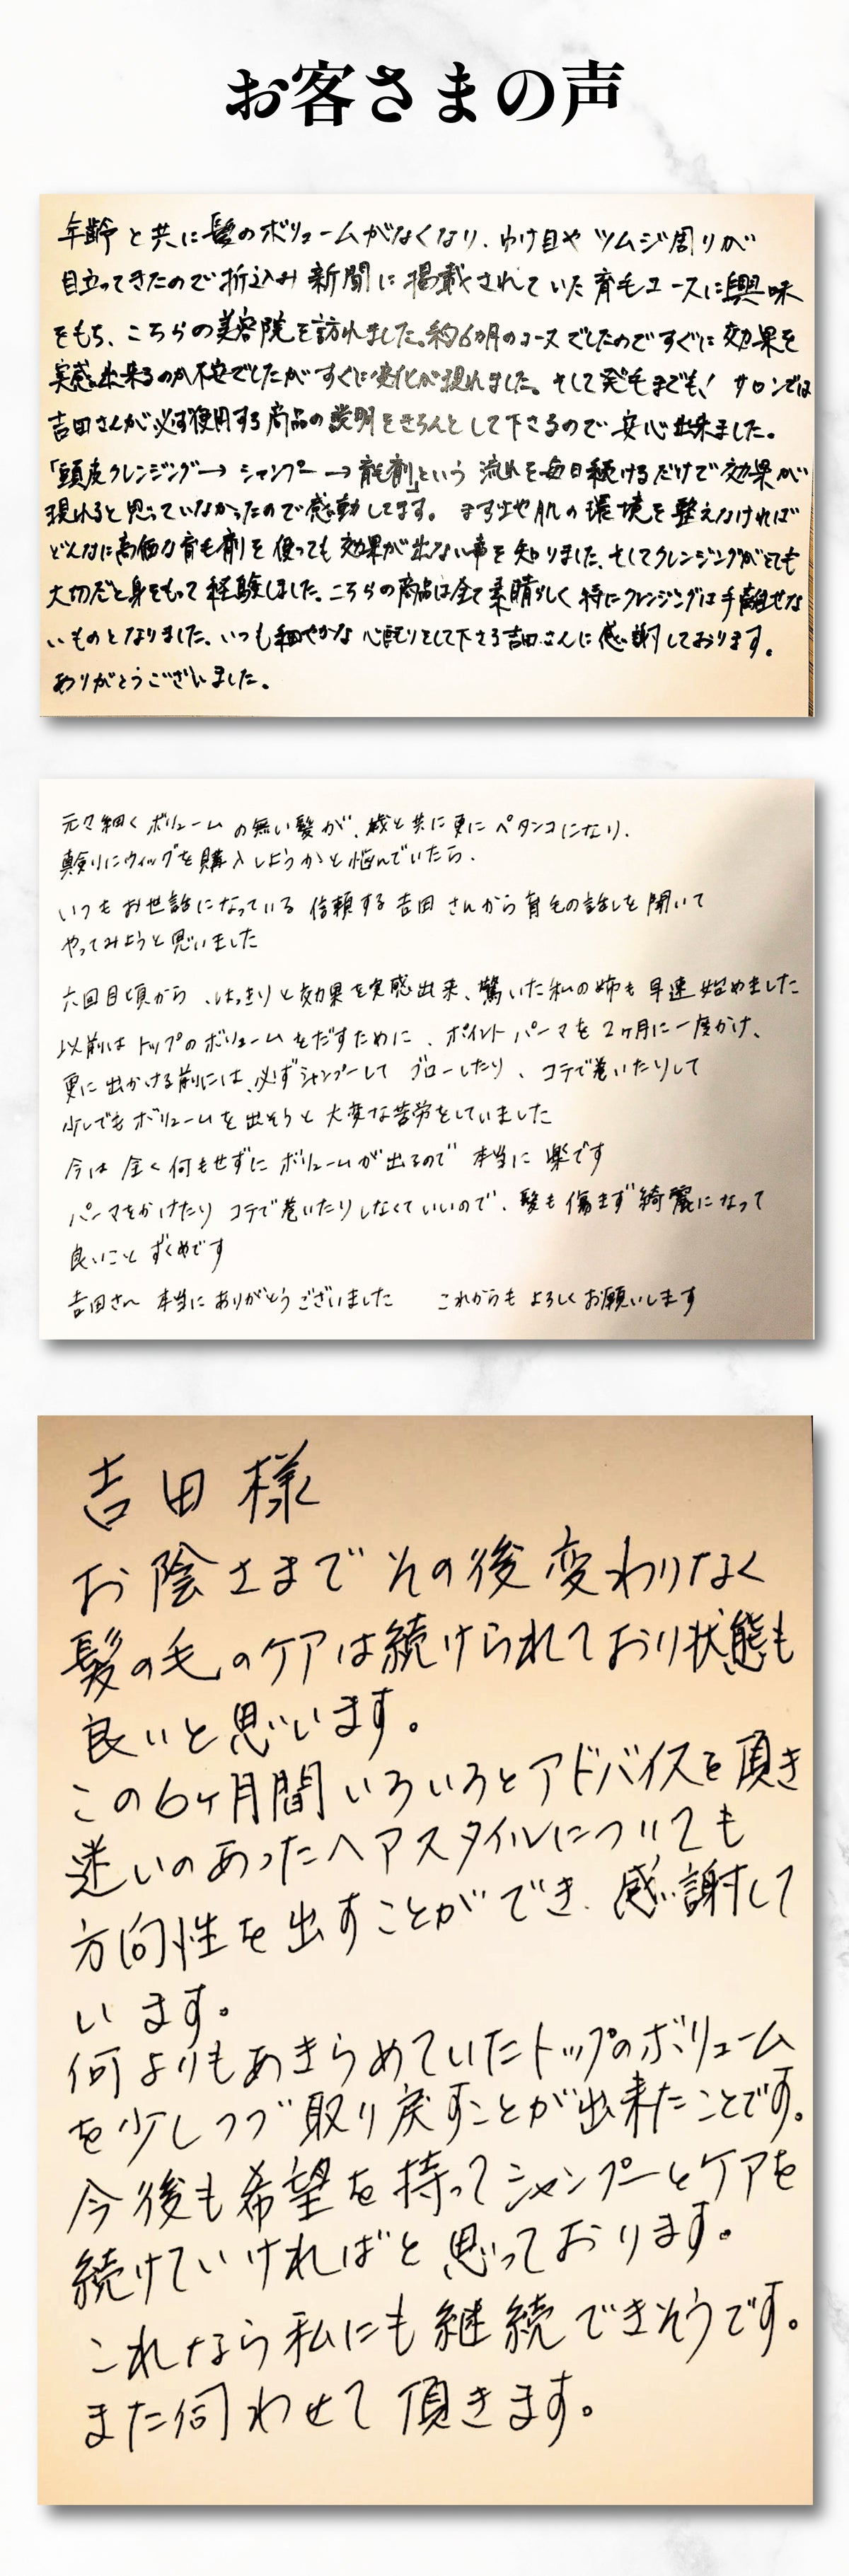 お客さまの声
年齢と共に髪のボリュームがなくなり、わけ目やツムジ周りが
目立ってきたので折込み新聞に掲載されていた育毛コースに興味
をもち、こちらの美容院を訪れました。約6カ月のコースでしたのですぐに効果を
実感出来るのか不安でしたがすぐに変化が現れました。そして発毛までも! サロンでは
吉田さんが必ず使用する商品の説明をきちんとして下さるので安心出来ました。
「頭皮クレンジング→シャンプー→育毛剤」という流れを毎日続けるだけで効果が
現れると思っていなかったので感動してます。まず地肌の環境を整えなければ
どんなに高価な育毛剤を使っても効果が出ない事を知りました、そしてクレンジングがとても
大切だと身をもって経験しました。こちらの商品は全て素晴らしく特にクレンジングは手離せな
いものとなりました、いつも細やかな心配りをして下さる吉田さんに感謝しております。
ありがとうございました。
元々細くボリュームの無い髪が、歳と共に更にペタンコになり、
真剣にウィッグを購入しようかと悩んでいたら、
いつもお世話になっている信頼する吉田さんから育毛の話しを聞いて
やってみようと思いました
六回目頃から、はっきりと効果を実感出来、驚いた私の姉も早速始めました
以前はトップのボリュームをだすために、ポイントパーマを2ヶ月に一度かけ、
更に出かける前には、必ずシャンプーしてブローしたり、コテで巻いたりして
少しでもボリュームを出そうと大変な苦労をしていました
今は全く何もせずにボリュームが出るので本当に楽です
パーマをかけたりコテで巻いたりしなくていいので、髪も傷まず綺麗になって
良いことずくめです
吉田さん 本当にありがとうございました これからもよろしくお願いします
吉田様
お陰さまでその後変わりなく
髪の毛のケアは続けられており状態も
良いと思います。
この6ヶ月間いろいろとアドバイスを頂き
迷いのあったヘアスタイルについても
方向性を出すことができ、感謝して
います。
何よりもあきらめていたトップのボリューム
を少しづつ取り戻すことが出来たことです。
今後も希望を持ってシャンプーとケアを
続けていければと思っております。
これなら私にも継続できそうです。
また伺わせて頂きます。